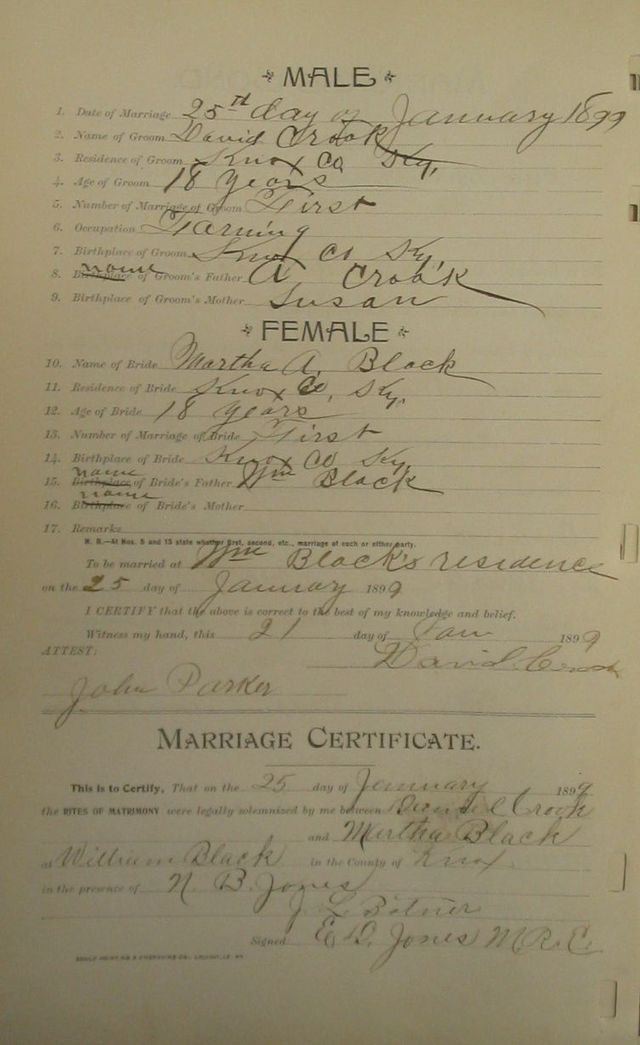 MALE
1. Date of Marriage 25th day of January 1899
2. Name of Groom David Crook
3. Residence of Groom Knox Co Ky,
4. Age of Groom 18 years
5. Number of Marriage of Groom First
6. Occupation Farming
7. Birthplace of Groom Knox Co Ky,
name
8. Birthplace of Groom's Father A Crook
9. Birthplace of Groom's Mother Susan
FEMALE
10. Name of Bride Martha A. Black
11. Residence of Bride Knox Co, Ky,
12. Age of Bride 18 years
13. Number of Marriage of Bride First
14. Birthplace of Bride Knox Co Ky,
name
15. Birthplace of Bride's Father Wm Black
name
16. Birthplace of Bride's Mother
17. Remarks
N. B.—At Nos. 5 and 13 state whether first, second, etc., marriage of each or either party.
To be married at Wm Black's residence
on the 25 day of January 1899
I CERTIFY that the above is correct to the best of my knowledge and belief.
Witness my hand, this 21 day of Jan 1899
ATTEST: David Crook
John Parker
MARRIAGE CERTIFICATE.
This is to Certify, That on the 25 day of January 1899
the RITES OF MATRIMONY were legally solemnized by me between Crook
and Martha Black
at William Black in the County of Knox
in the presence of N. B. Jones
J. L.
Signed E. D. Jones M. R. C.